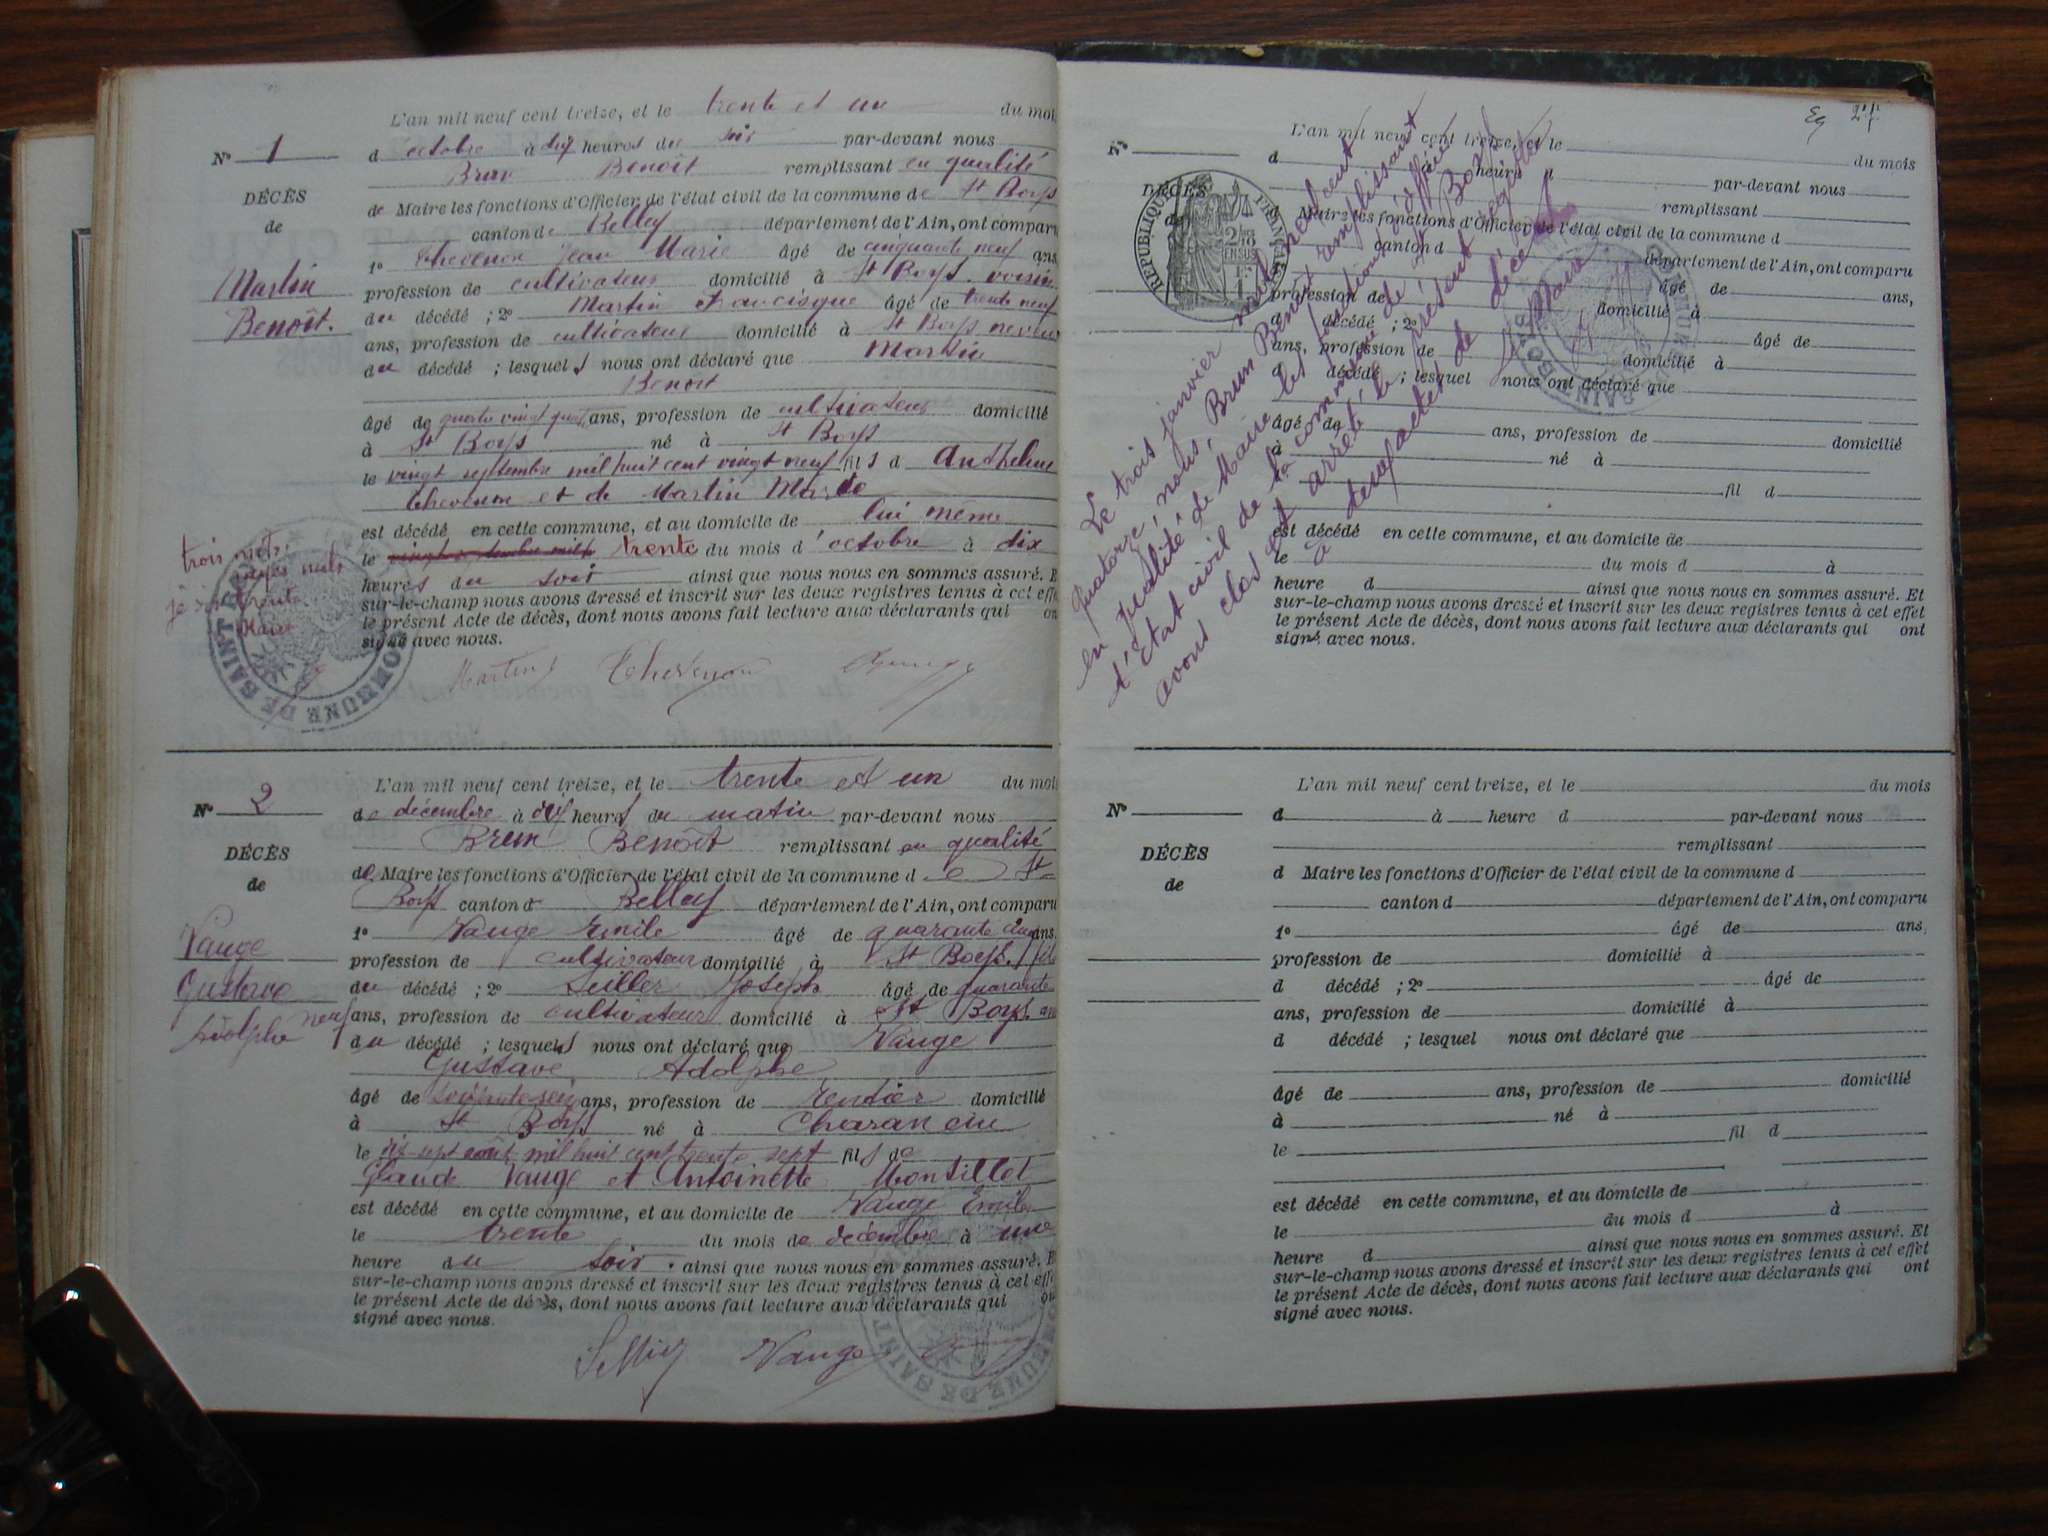 L'an mil neuf cent treize, et le trente et un du mois
d octobre à dix heures du soir par-devant nous
N° 1
Brun Benoît remplissant en qualité
DÉCÈS
de Maire les fonctions d'Officier de l'état civil de la commune de St Boys
de
canton de Belley département de l'Ain, ont comparu
1° Thevenon Jean Marie âgé de cinquante neuf ans
Martin
profession de cultivateur domicilié à St Boys voisin
Benoît.
du décédé ; 2° Martin Francisque âgé de trente neuf
ans, profession de cultivateur domicilié à St Boys neveu
du décédé ; lesquels nous ont déclaré que Martin
Benoît
âgé de quatre vingt quatre ans, profession de cultivateur domicilié
à St Boys né à St Boys
le vingt septembre mil huit cent vingt neuf fils d Anthelme
Thevenon et de Martin Marie
est décédé en cette commune, et au domicile de lui même
le vingt septembre mil trente du mois d'octobre à dix
trois mots
rayés nuls
heures du soir ainsi que nous nous en sommes assuré. E
trente
sur-le-champ nous avons dressé et inscrit sur les deux registres tenus à cet effe
Maire
le présent Acte de décès, dont nous avons fait lecture aux déclarants qui on
signé avec nous.
Martin Thevenon
COMMUNE DE SAINT
L'an mil neuf cent treize, et le trente et un du mois
N° 2
de décembre à dix heures du matin par-devant nous
Brun Benoît remplissant en qualité
DÉCÈS
de Maire les fonctions d'Officier de l'état civil de la commune de St
de
Boys canton d Belley département de l'Ain, ont comparu
Vauge
1° Vauge Emile âgé de quarante cinq ans
profession de cultivateur domicilié à St Boys fils
Gustave
du décédé ; 2° Sellier Joseph âgé de quarante
Adolphe
neuf ans, profession de cultivateur domicilié à St Boys ami
du décédé ; lesquels nous ont déclaré que Vauge
Gustave Adolphe
âgé de soixante seize ans, profession de rentier domicilié
à St Boys né à Charancin
le dix sept août mil huit cent trente sept fils de
Claude Vauge et Antoinette Montillet
est décédé en cette commune, et au domicile de Vauge Emile
le trente du mois de décembre à une
heure du soir ainsi que nous nous en sommes assuré. E
sur-le-champ nous avons dressé et inscrit sur les deux registres tenus à cet effe
le présent Acte de décès, dont nous avons fait lecture aux déclarants qui on
signé avec nous.
Sellier Vauge
COMMUNE DE SAINT
27
L'an mil neuf cent treize, et le du mois
N°
d heure d par-devant nous
DÉCÈS
remplissant
de
d Maire les fonctions d'Officier de l'état civil de la commune d
canton d département de l'Ain, ont comparu
âgé de ans,
profession de domicilié à
d décédé ; 2° âgé de
ans, profession de domicilié à
d décédé ; lesquel nous ont déclaré que
âgé de ans, profession de domicilié
à né à
fil d
est décédé en cette commune, et au domicile de
le du mois d à
heure d ainsi que nous nous en sommes assuré. Et
sur-le-champ nous avons dressé et inscrit sur les deux registres tenus à cet effet
le présent Acte de décès, dont nous avons fait lecture aux déclarants qui ont
signé avec nous.
RÉPUBLIQUE FRANÇAISE
2/10 EN SUS
Le trois janvier mil neuf cent
quatorze, nous, Brun Benoît remplissant
en qualité de Maire les fonctions d'officier
d'Etat civil de la commune de St Boys
avons clos et arrêté le présent registre
à deux actes de décès
Le Maire
L'an mil neuf cent treize, et le du mois
N°
d à heure d par-devant nous
remplissant
DÉCÈS
d Maire les fonctions d'Officier de l'état civil de la commune d
de
canton d département de l'Ain, ont comparu
1° âgé de ans,
profession de domicilié à
d décédé ; 2° âgé de
ans, profession de domicilié à
d décédé ; lesquel nous ont déclaré que
âgé de ans, profession de domicilié
à né à
le fil d
est décédé en cette commune, et au domicile de
le du mois d à
heure d ainsi que nous nous en sommes assuré. Et
sur-le-champ nous avons dressé et inscrit sur les deux registres tenus à cet effet
le présent Acte de décès, dont nous avons fait lecture aux déclarants qui ont
signé avec nous.